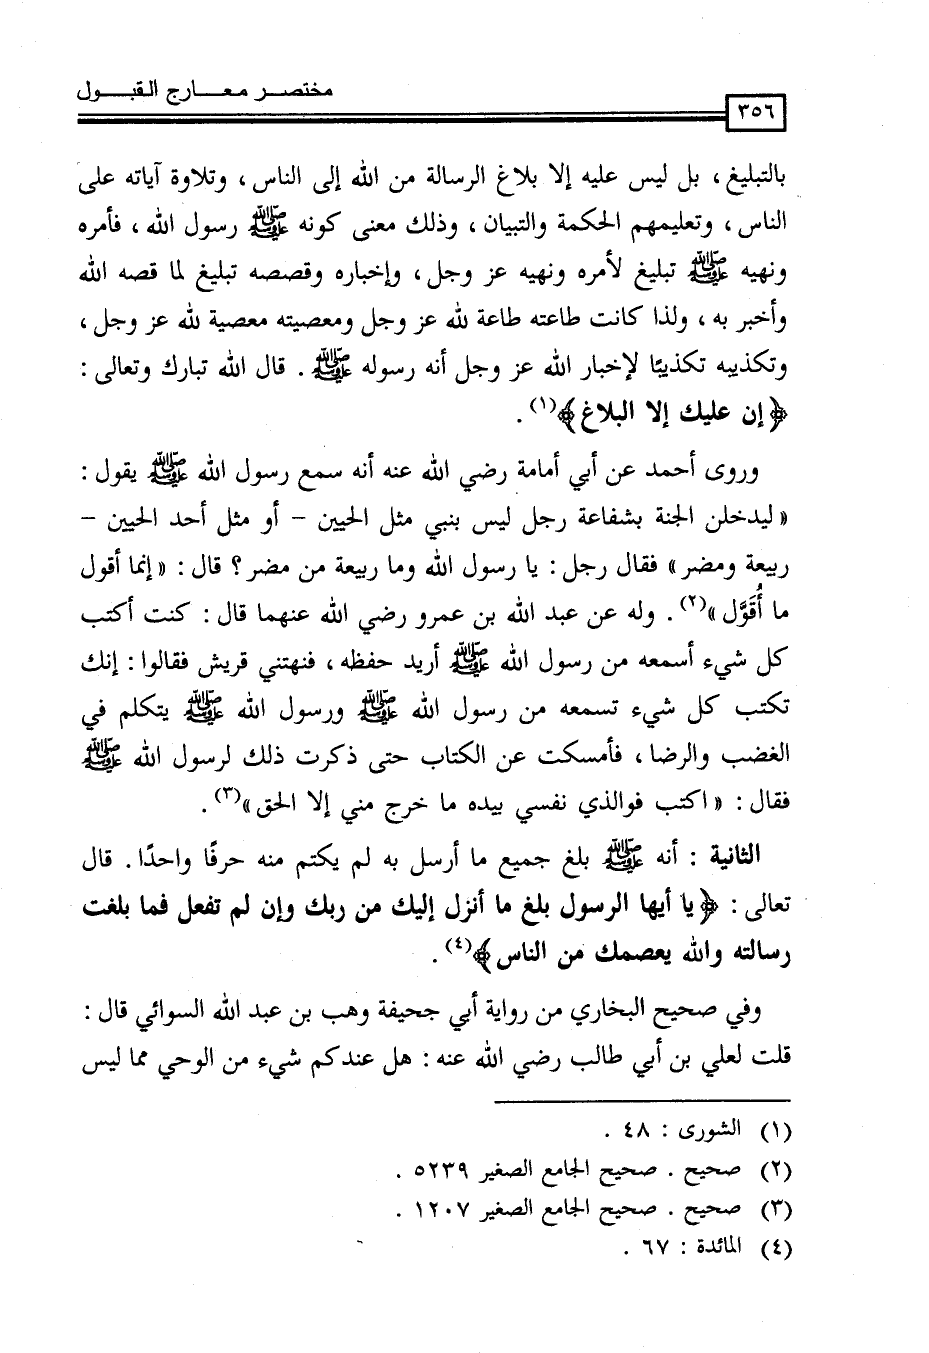 مختصر معارج القبول
٣٥٦
بالتبليغ ، بل ليس عليه إلا بلاغ الرسالة من الله إلى الناس ، وتلاوة آياته على
الناس ، وتعليمهم الحكمة والتبيان ، وذلك معنى كونه ﷺ رسول الله ، فأمره
ونهيه ﷺ تبليغ لأمره ونهيه عز وجل ، وإخباره وقصصه تبليغ لما قصه الله
وأخبر به ، ولذا كانت طاعته طاعة لله عز وجل ومعصيته معصية لله عز وجل ،
وتكذيبه تكذيبًا لإخبار الله عز وجل أنه رسوله ﷺ . قال الله تبارك وتعالى :
﴿إن عليك إلا البلاغ﴾(١) .
وروى أحمد عن أبي أمامة رضي الله عنه أنه سمع رسول الله ﷺ يقول :
« ليدخلن الجنة بشفاعة رجل ليس بنبي مثل الحيين – أو مثل أحد الحيين –
ربيعة ومضر » فقال رجل : يا رسول الله وما ربيعة من مضر ؟ قال : « إنما أقول
ما أُقَوَّل »(٢) . وله عن عبد الله بن عمرو رضي الله عنهما قال : كنت أكتب
كل شيء أسمعه من رسول الله ﷺ أريد حفظه ، فنهتني قريش فقالوا : إنك
تكتب كل شيء تسمعه من رسول الله ﷺ ورسول الله ﷺ يتكلم في
الغضب والرضا ، فأمسكت عن الكتاب حتى ذكرت ذلك لرسول الله ﷺ
فقال : « اكتب فوالذي نفسي بيده ما خرج مني إلا الحق »(٣) .
الثانية : أنه ﷺ بلغ جميع ما أرسل به لم يكتم منه حرفًا واحدًا . قال
تعالى : ﴿يا أيها الرسول بلغ ما أنزل إليك من ربك وإن لم تفعل فما بلغت
رسالته والله يعصمك من الناس﴾(٤) .
وفي صحيح البخاري من رواية أبي جحيفة وهب بن عبد الله السوائي قال :
قلت لعلي بن أبي طالب رضي الله عنه : هل عندكم شيء من الوحي مما ليس
(١) الشورى : ٤٨ .
(٢) صحيح . صحيح الجامع الصغير ٥٢٣٩ .
(٣) صحيح . صحيح الجامع الصغير ١٢٠٧ .
(٤) المائدة : ٦٧ .